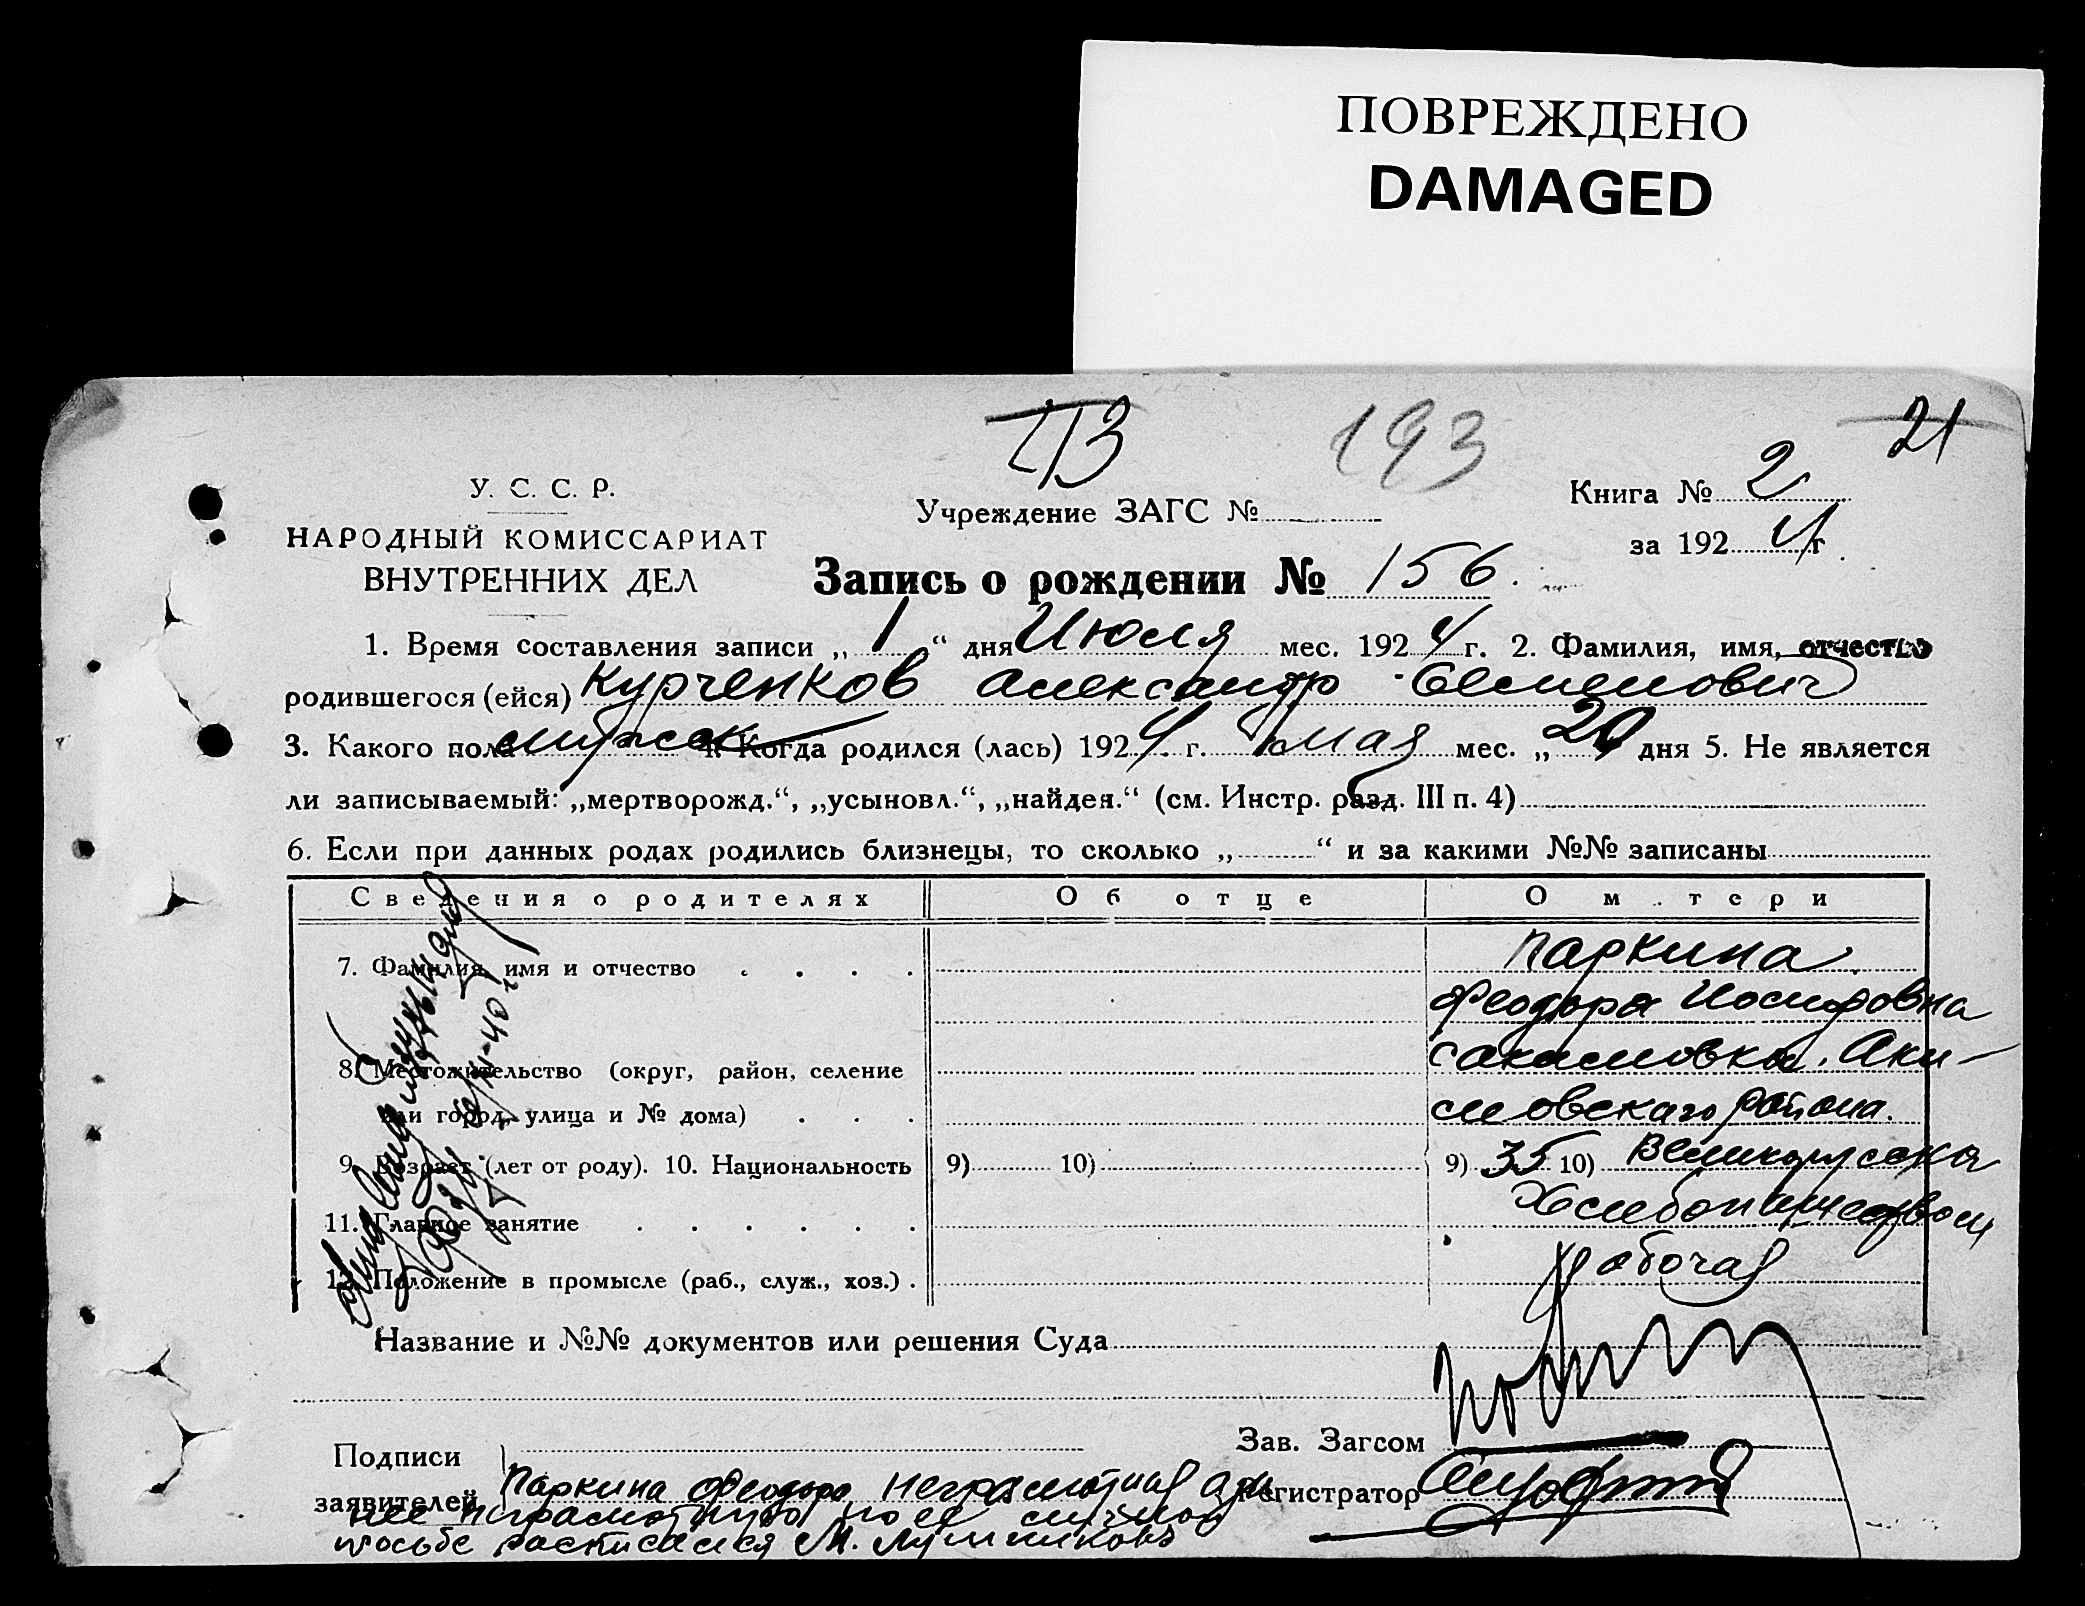 ПОВРЕЖДЕНО
DAMAGED
113 193 21
У. С. С. Р.
НАРОДНЫЙ КОМИССАРИАТ
ВНУТРЕННИХ ДЕЛ
Учреждение ЗАГС №
Книга № 2
за 1924 г.
Запись о рождении № 156.
1. Время составления записи „1“ дня Июля мес. 1924 г. 2. Фамилия, имя, отчество
родившегося (ейся) Курченков Александр Семенович
3. Какого пола мужск 4. Когда родился (лась) 1924 г. мая мес. „20 дня 5. Не является
ли записываемый: „мертворожд.“, „усыновл.“, „найден.“ (см. Инстр. разд. III п. 4)
6. Если при данных родах родились близнецы, то сколько „ “ и за какими №№ записаны
Сведения о родителях Об отце О м тери
7. Фамилия, имя и отчество Паркина
Феодора Иосифовна
8. Местожительство (округ, район, селение Аки-
или город, улица и № дома) мовскаго района.
9. Возраст (лет от роду). 10. Национальность 9) 10) 9) 35 10) Великорусская
11. Главное занятие Хлебопашеством
12. Положение в промысле (раб., служ., хоз.) рабочая
Название и №№ документов или решения Суда
Зав. Загсом
Подписи
заявителей Паркина Феодора неграмотная а за
Регистратор
нее неграмотную по ее личной
просьбе расписался М.